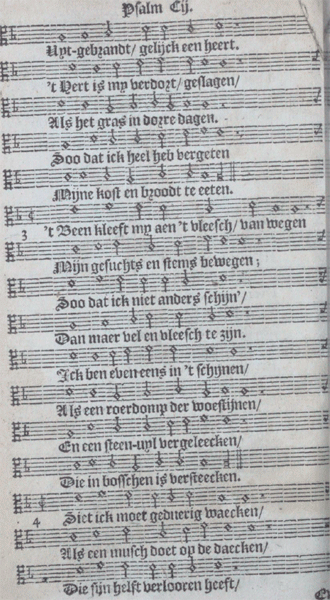 Psalm Cij.
Uyt-gebrandt/ gelijck een heert.
't Hert is my verdort/ geslagen/
Als het gras in dorre dagen.
Soo dat ick heel heb vergeten
Mijne kost en broodt te eeten.
3 't Been kleeft my aen 't vleesch/ van wegen
Mijn gesuchts en stems bewegen;
Soo dat ick niet anders schijn'/
Dan maer vel en vleesch te zijn.
Ick ben even-eens in 't schijnen/
Als een roerdomp der woestijnen/
En een steen-uyl vergeleecken/
Die in bosschen is versteecken.
4 Siet ick moet geduerig waecken/
Als een musch doet op de daecken/
Die sijn helft verlooren heeft/